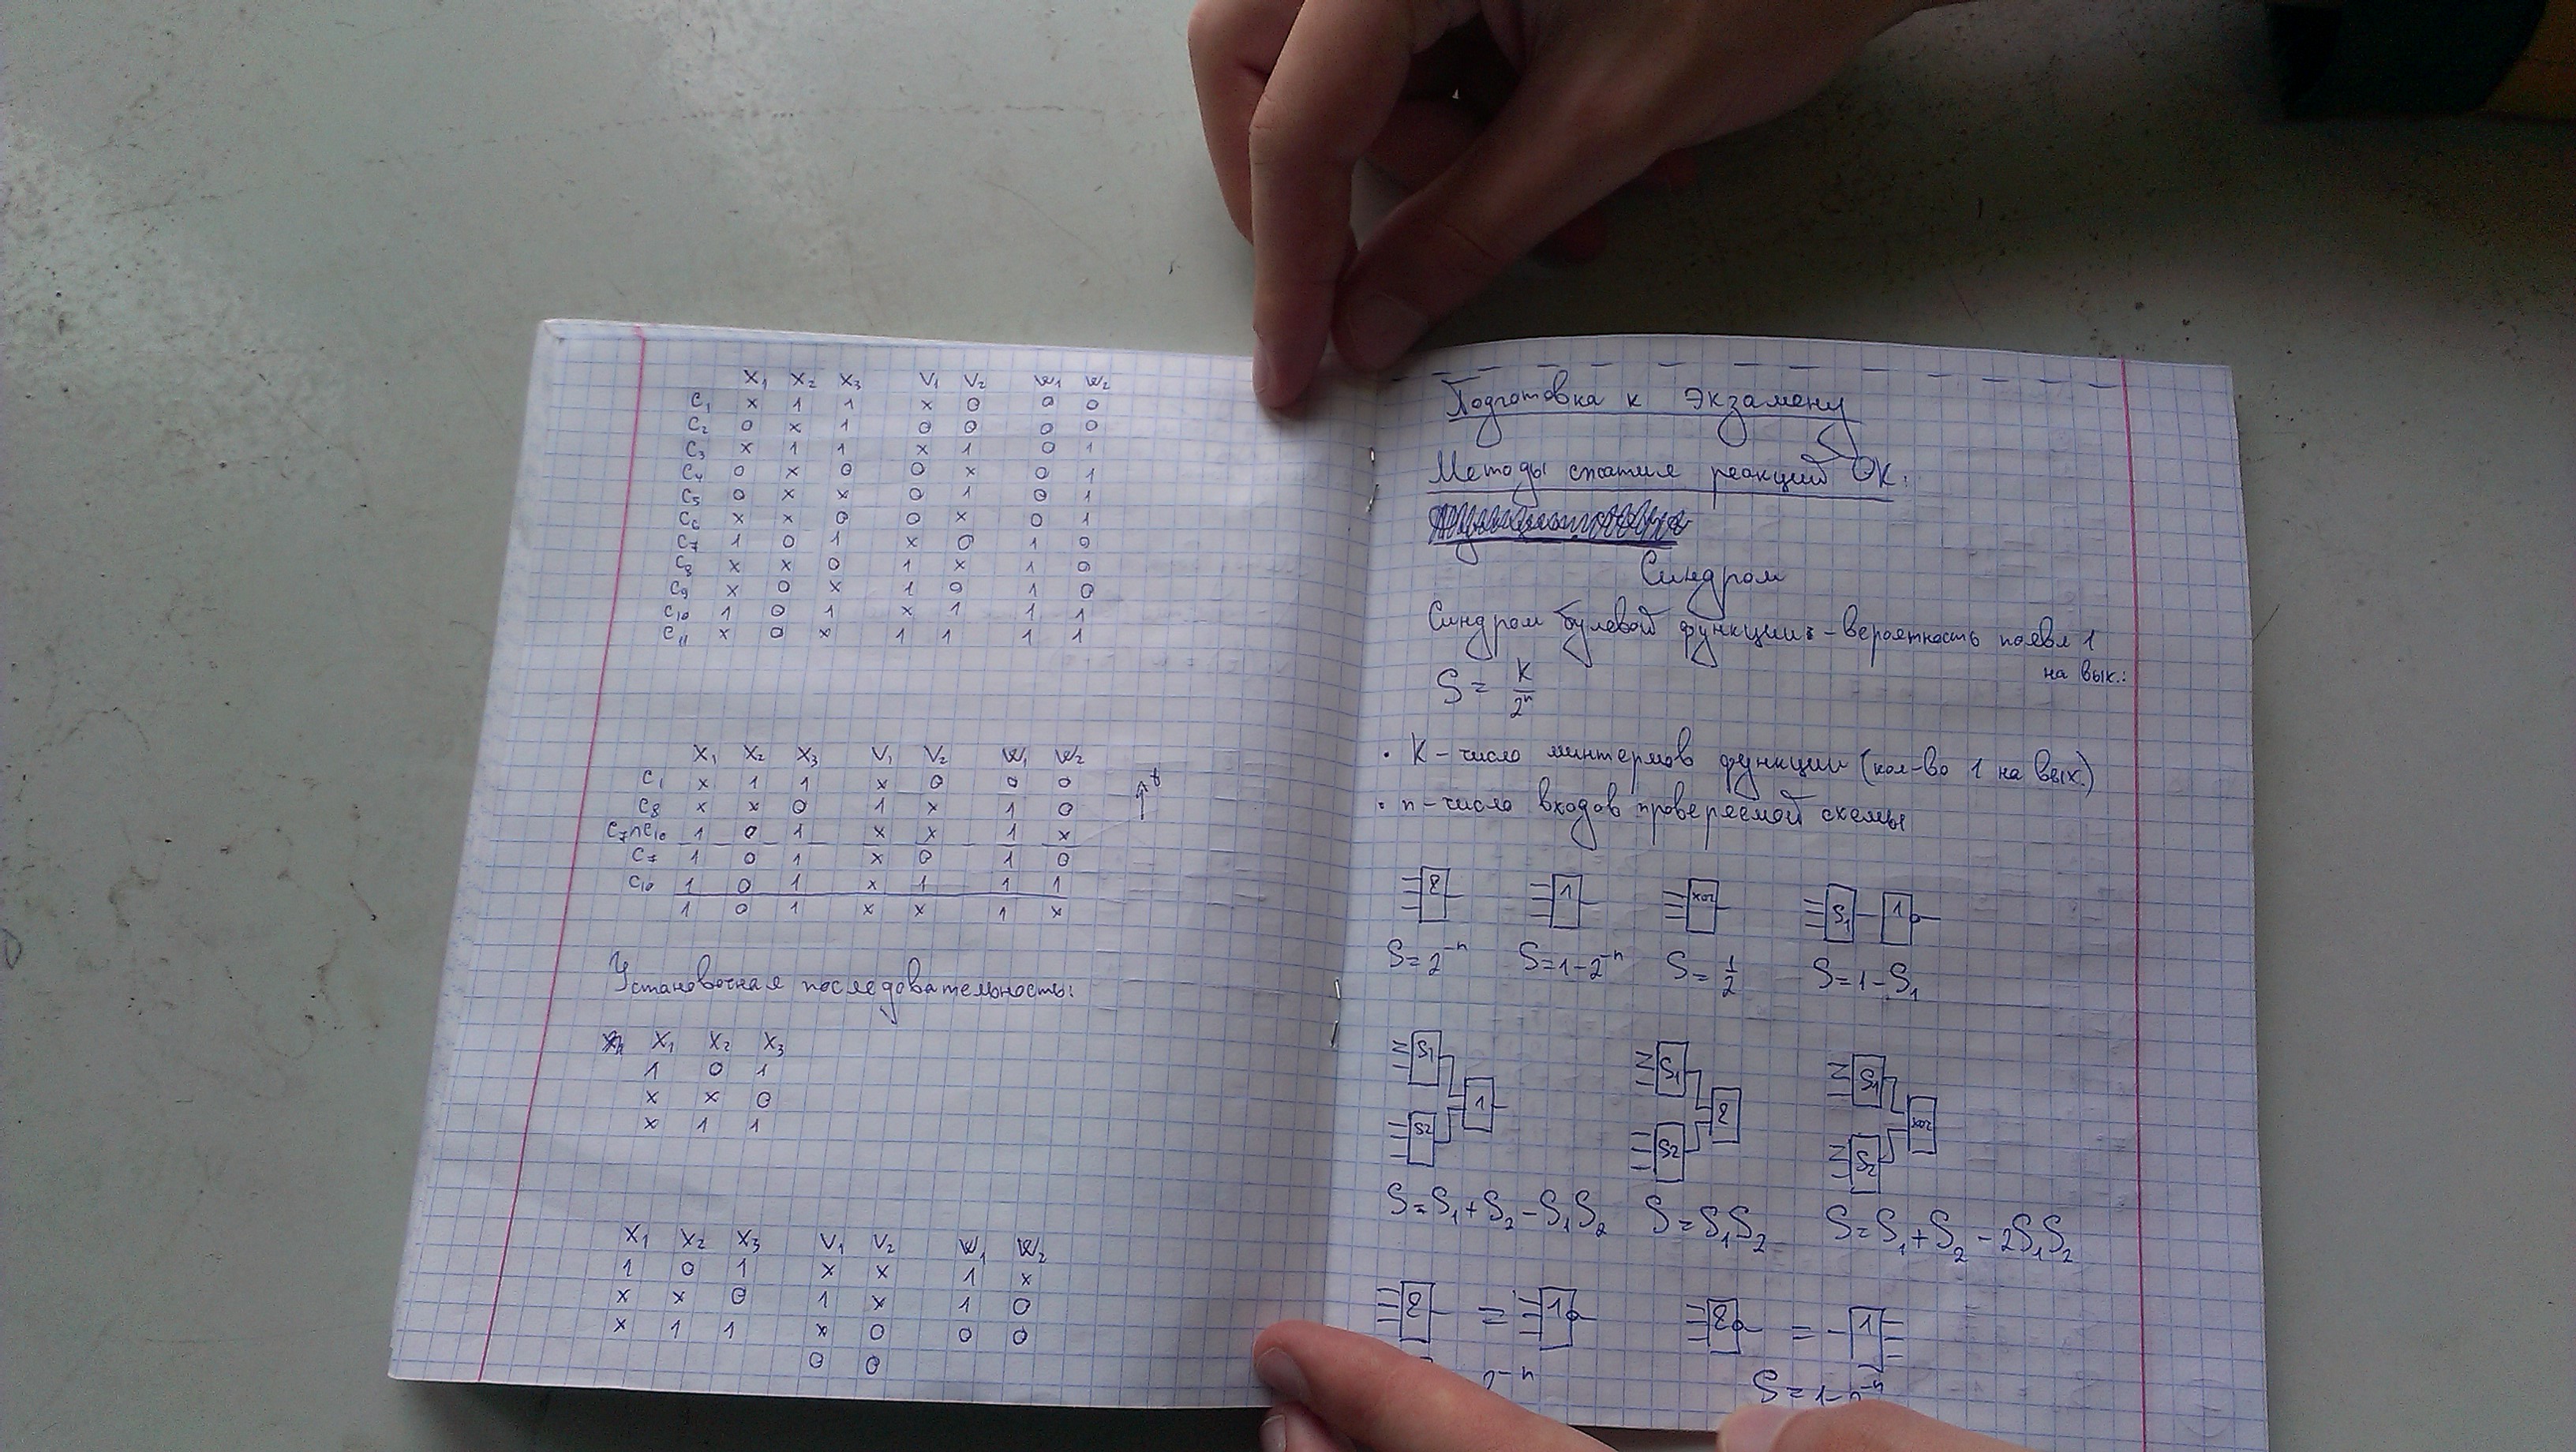 x₁ x₂ x₃ v₁ v₂ w₁ w₂
C₁ x 1 1 x 0 0 0
C₂ 0 x 1 0 0 0 0
C₃ x 1 1 x 1 0 1
C₄ 0 x 0 0 x 0 1
C₅ 0 x x 0 1 0 1
C₆ x x 0 0 x 0 1
C₇ 1 0 1 x 0 1 0
C₈ x x 0 1 x 1 0
C₉ x 0 x 1 0 1 0
C₁₀ 1 0 1 x 1 1 1
C₁₁ x 0 x 1 1 1 1
x₁ x₂ x₃ v₁ v₂ w₁ w₂
C₁ x 1 1 x 0 0 0 ↑t
C₈ x x 0 1 x 1 0
C₇∩C₁₀ 1 0 1 x x 1 x
C₇ 1 0 1 x 0 1 0
C₁₀ 1 0 1 x 1 1 1
1 0 1 x x 1 x
Установочная последовательность:
x₁ x₂ x₃
1 0 1
x x 0
x 1 1
x₁ x₂ x₃ v₁ v₂ w₁ w₂
1 0 1 x x 1 x
x x 0 1 x 1 0
x 1 1 x 0 0 0
0 0
Подготовка к Экзамену
Методы сжатия реакций ОК:
Синдром
Синдром булевой функции - вероятность появл 1
на вых.:
S = K/2ⁿ
• K - число минтермов функции (кол-во 1 на вых.)
• n - число входов проверяемой схемы
& 1 xor S₁ 1
S=2⁻ⁿ S=1-2⁻ⁿ S=1/2 S=1-S₁
S₁ S₁ S₁
1 & xor
S₂ S₂ S₂
S=S₁+S₂-S₁S₂ S=S₁S₂ S=S₁+S₂-2S₁S₂
& = 1 & = 1
2⁻ⁿ S=1-2⁻ⁿ